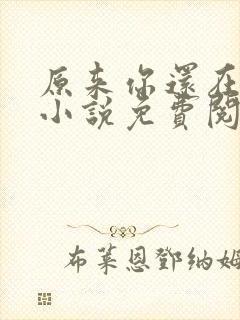 原来你還在
小說免費閱
布萊恩鄧納姆